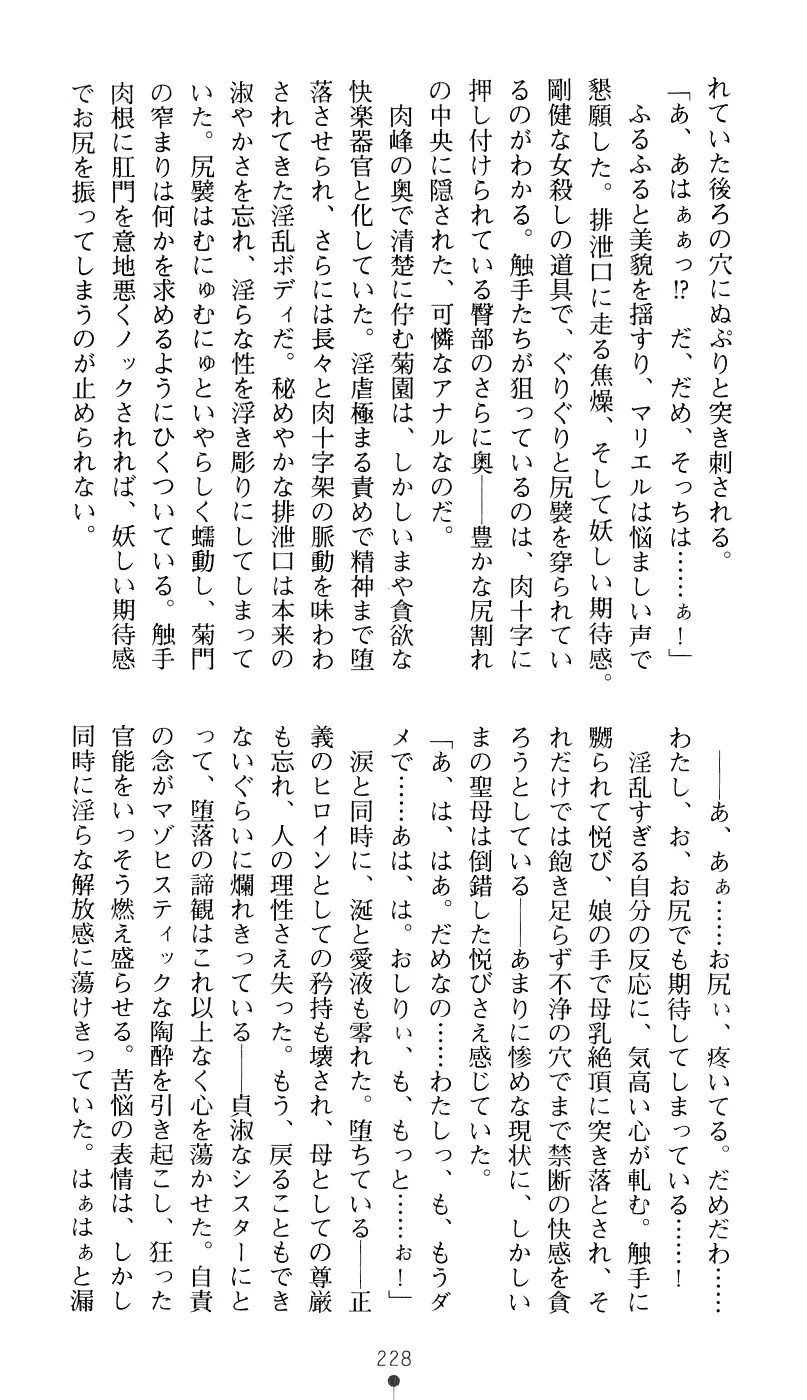 れていた後ろの穴にぬぷりと突き刺される。
「あ、あはぁぁっ!?　だ、だめ、そっちは……ぁ！」
　ふるふると美貌を揺すり、マリエルは悩ましい声で
懇願した。排泄口に走る焦燥、そして妖しい期待感。
剛健な女殺しの道具で、ぐりぐりと尻襞を穿られてい
るのがわかる。触手たちが狙っているのは、肉十字に
押し付けられている臀部のさらに奥――豊かな尻割れ
の中央に隠された、可憐なアナルなのだ。
　肉峰の奥で清楚に佇む菊園は、しかしいまや貪欲な
快楽器官と化していた。淫虐極まる責めで精神まで堕
落させられ、さらには長々と肉十字架の脈動を味わわ
されてきた淫乱ボディだ。秘めやかな排泄口は本来の
淑やかさを忘れ、淫らな性を浮き彫りにしてしまって
いた。尻襞はむにゅむにゅといやらしく蠕動し、菊門
の窄まりは何かを求めるようにひくついている。触手
肉根に肛門を意地悪くノックされれば、妖しい期待感
でお尻を振ってしまうのが止められない。
　――あ、あぁ……お尻ぃ、疼いてる。だめだわ……
わたし、お、お尻でも期待してしまっている……！
　淫乱すぎる自分の反応に、気高い心が軋む。触手に
嬲られて悦び、娘の手で母乳絶頂に突き落とされ、そ
れだけでは飽き足らず不浄の穴でまで禁断の快感を貪
ろうとしている――あまりに惨めな現状に、しかしい
まの聖母は倒錯した悦びさえ感じていた。
「あ、は、はあ。だめなの……わたしっ、も、もうダ
メで……あは、は。おしりぃ、も、もっと……ぉ！」
　涙と同時に、涎と愛液も零れた。堕ちている――正
義のヒロインとしての矜持も壊され、母としての尊厳
も忘れ、人の理性さえ失った。もう、戻ることもでき
ないぐらいに爛れきっている――貞淑なシスターにと
って、堕落の諦観はこれ以上なく心を蕩かせた。自責
の念がマゾヒスティックな陶酔を引き起こし、狂った
官能をいっそう燃え盛らせる。苦悩の表情は、しかし
同時に淫らな解放感に蕩けきっていた。はぁはぁと漏
228